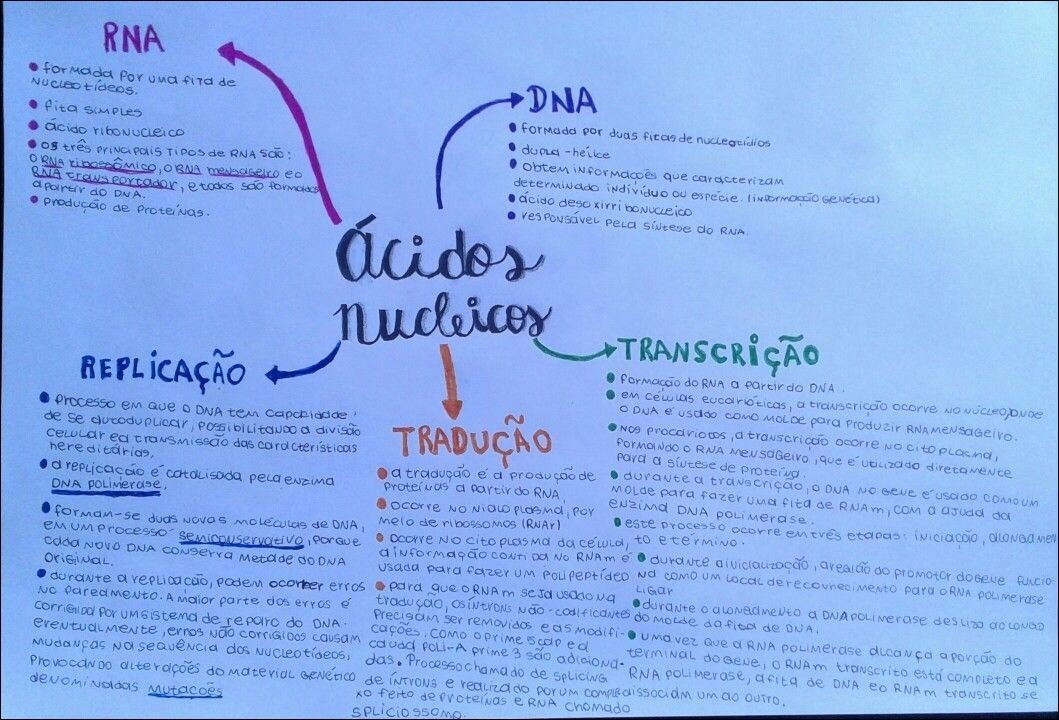 RNA
• formada por uma fita de
nucleotídeos.
• fita simples
• ácido ribonucleico
• os três principais tipos de RNA são:
o RNA ribossômico, o RNA mensageiro e o
RNA transportador, e todos são formados
a partir do DNA.
• produção de proteínas.
DNA
• formada por duas fitas de nucleotídios
• dupla-hélice
• obtem informações que caracterizam
determinado indivíduo ou espécie. (informação genética)
• ácido desoxirribonucleico
• responsável pela síntese do RNA.
Ácidos
nucleicos
REPLICAÇÃO
• processo em que o DNA tem capacidade
de se autoduplicar, possibilitando a divisão
celular e a transmissão das características
hereditárias.
• a replicação é catalisada pela enzima
DNA polimerase.
• formam-se duas novas moléculas de DNA,
em um processo semiconservativo, porque
cada novo DNA conserva metade do DNA
original.
• durante a replicação, podem ocorrer erros
no pareamento. A maior parte dos erros é
corrigida por um sistema de reparo do DNA.
eventualmente, erros não corrigidos causam
mudanças na sequência dos nucleotídeos,
provocando alterações do material genético
denominadas mutações
TRADUÇÃO
• a tradução é a produção de
proteínas a partir do RNA.
• ocorre no , por
meio de ribossomos (RNAr)
• ocorre no citoplasma da célula,
a informação contida no RNAm é
usada para fazer um polipeptídeo
• para que o RNAm seja usado na
tradução, os íntrons não-codificantes
precisam ser removidos e as modifi-
cações, como o prime 5 cap e a
cauda poli-A prime 3 são adiciona-
das. Processo chamado de splicing
de íntrons e realizado por um comple
xo feito de proteínas e RNA chamado
spliciossomo.
TRANSCRIÇÃO
• formação do RNA a partir do DNA.
• em células eucarióticas, a transcrição ocorre no núcleo, onde
o DNA é usado como molde para produzir RNA mensageiro.
• nos procariotos, a transcrição ocorre no citoplasma,
formando o RNA mensageiro, que é utilizado diretamente
para a síntese de proteína.
• durante a transcrição, o DNA no gene é usado como um
molde para fazer uma fita de RNAm, com a ajuda da
enzima DNA polimerase.
• este processo ocorre em três etapas: iniciação, alongamen
to e término.
• durante a inicialização, a região do promotor do gene funcio
na como um local de reconhecimento para o RNA polimerase
ligar
• durante o alongamento a DNA polimerase desliza ao longo
do molde da fita de DNA.
• uma vez que a RNA polimerase alcança a porção do
terminal do gene, o RNAm transcrito está completo e a
RNA polimerase, a fita de DNA e o RNAm transcrito se
dissociam um ao outro.